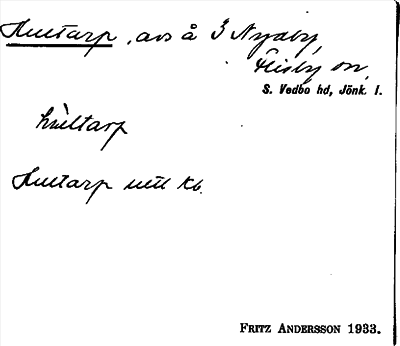 Hultarp, avs å 3 Nyaby,
Flisby sn,
S. Vedbo hd, Jönk. l.
hùltarp
Hultarp uttl Kb.
FRITZ ANDERSSON 1933.